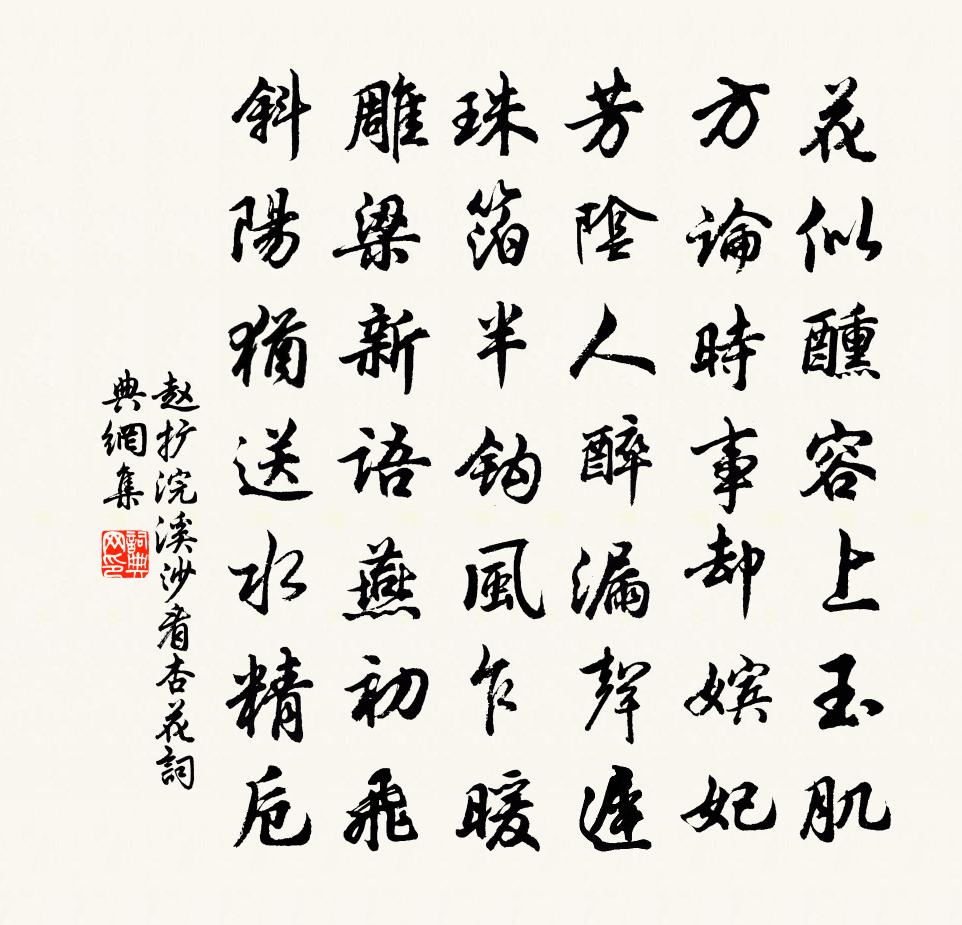 花似醺容上玉肌
方論時事却嬪妃
芳陰人醉漏聲遲
珠箔半鈎風乍暖
雕梁新語燕初飛
斜陽猶送水精卮
赵扩浣溪沙看杏花詞
典網集
詞典
网印